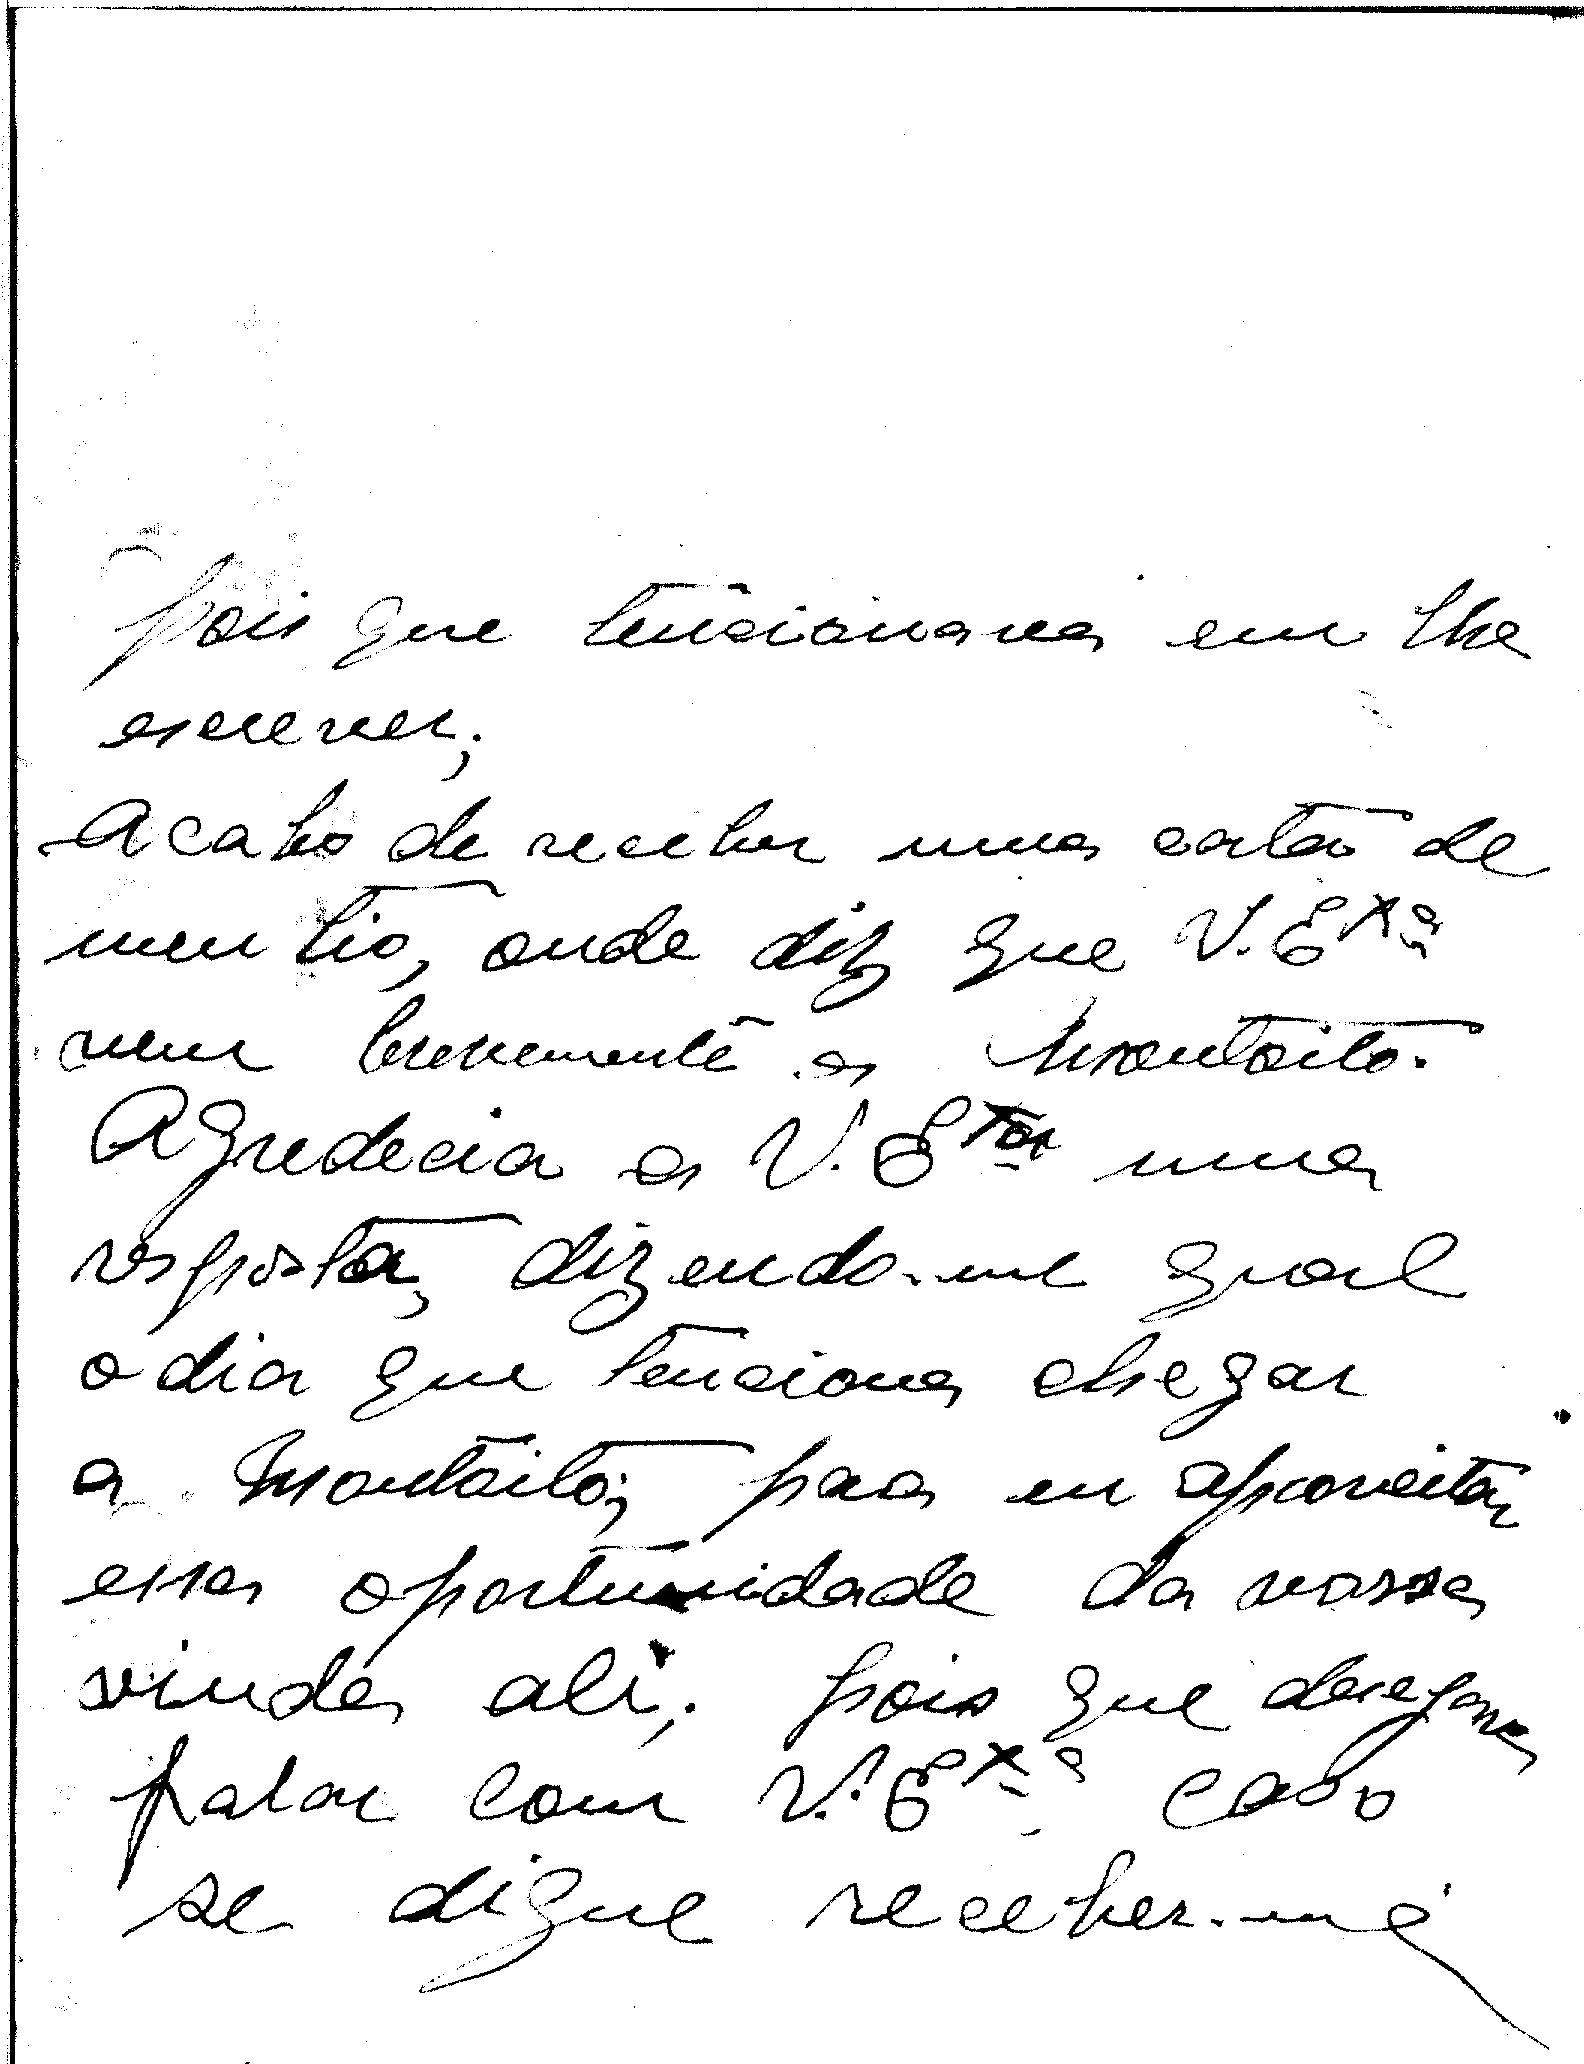 pois que tencionava em lhe
escrever;
Acabo de receber uma carta de
meu tio, onde diz que V. Exª
vem brevemente a Montoito.
Agredecia a V. Exª uma
resposta, dizendo-me qual
o dia que tenciona chegar
a Montoito, para eu aproveitar
essa oportunidade da vossa
vinda ali; pois que desejava
falar com V. Exª caso
se digne receber-me